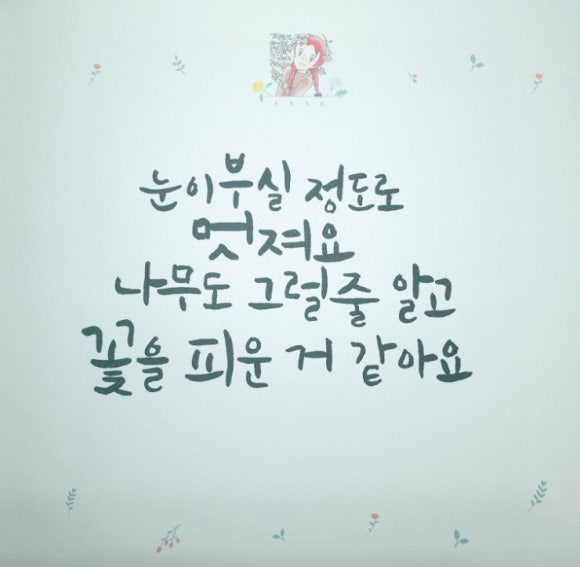 눈이부실 정도로
멋져요
나무도 그럴줄 알고
꽃을 피운 거 같아요